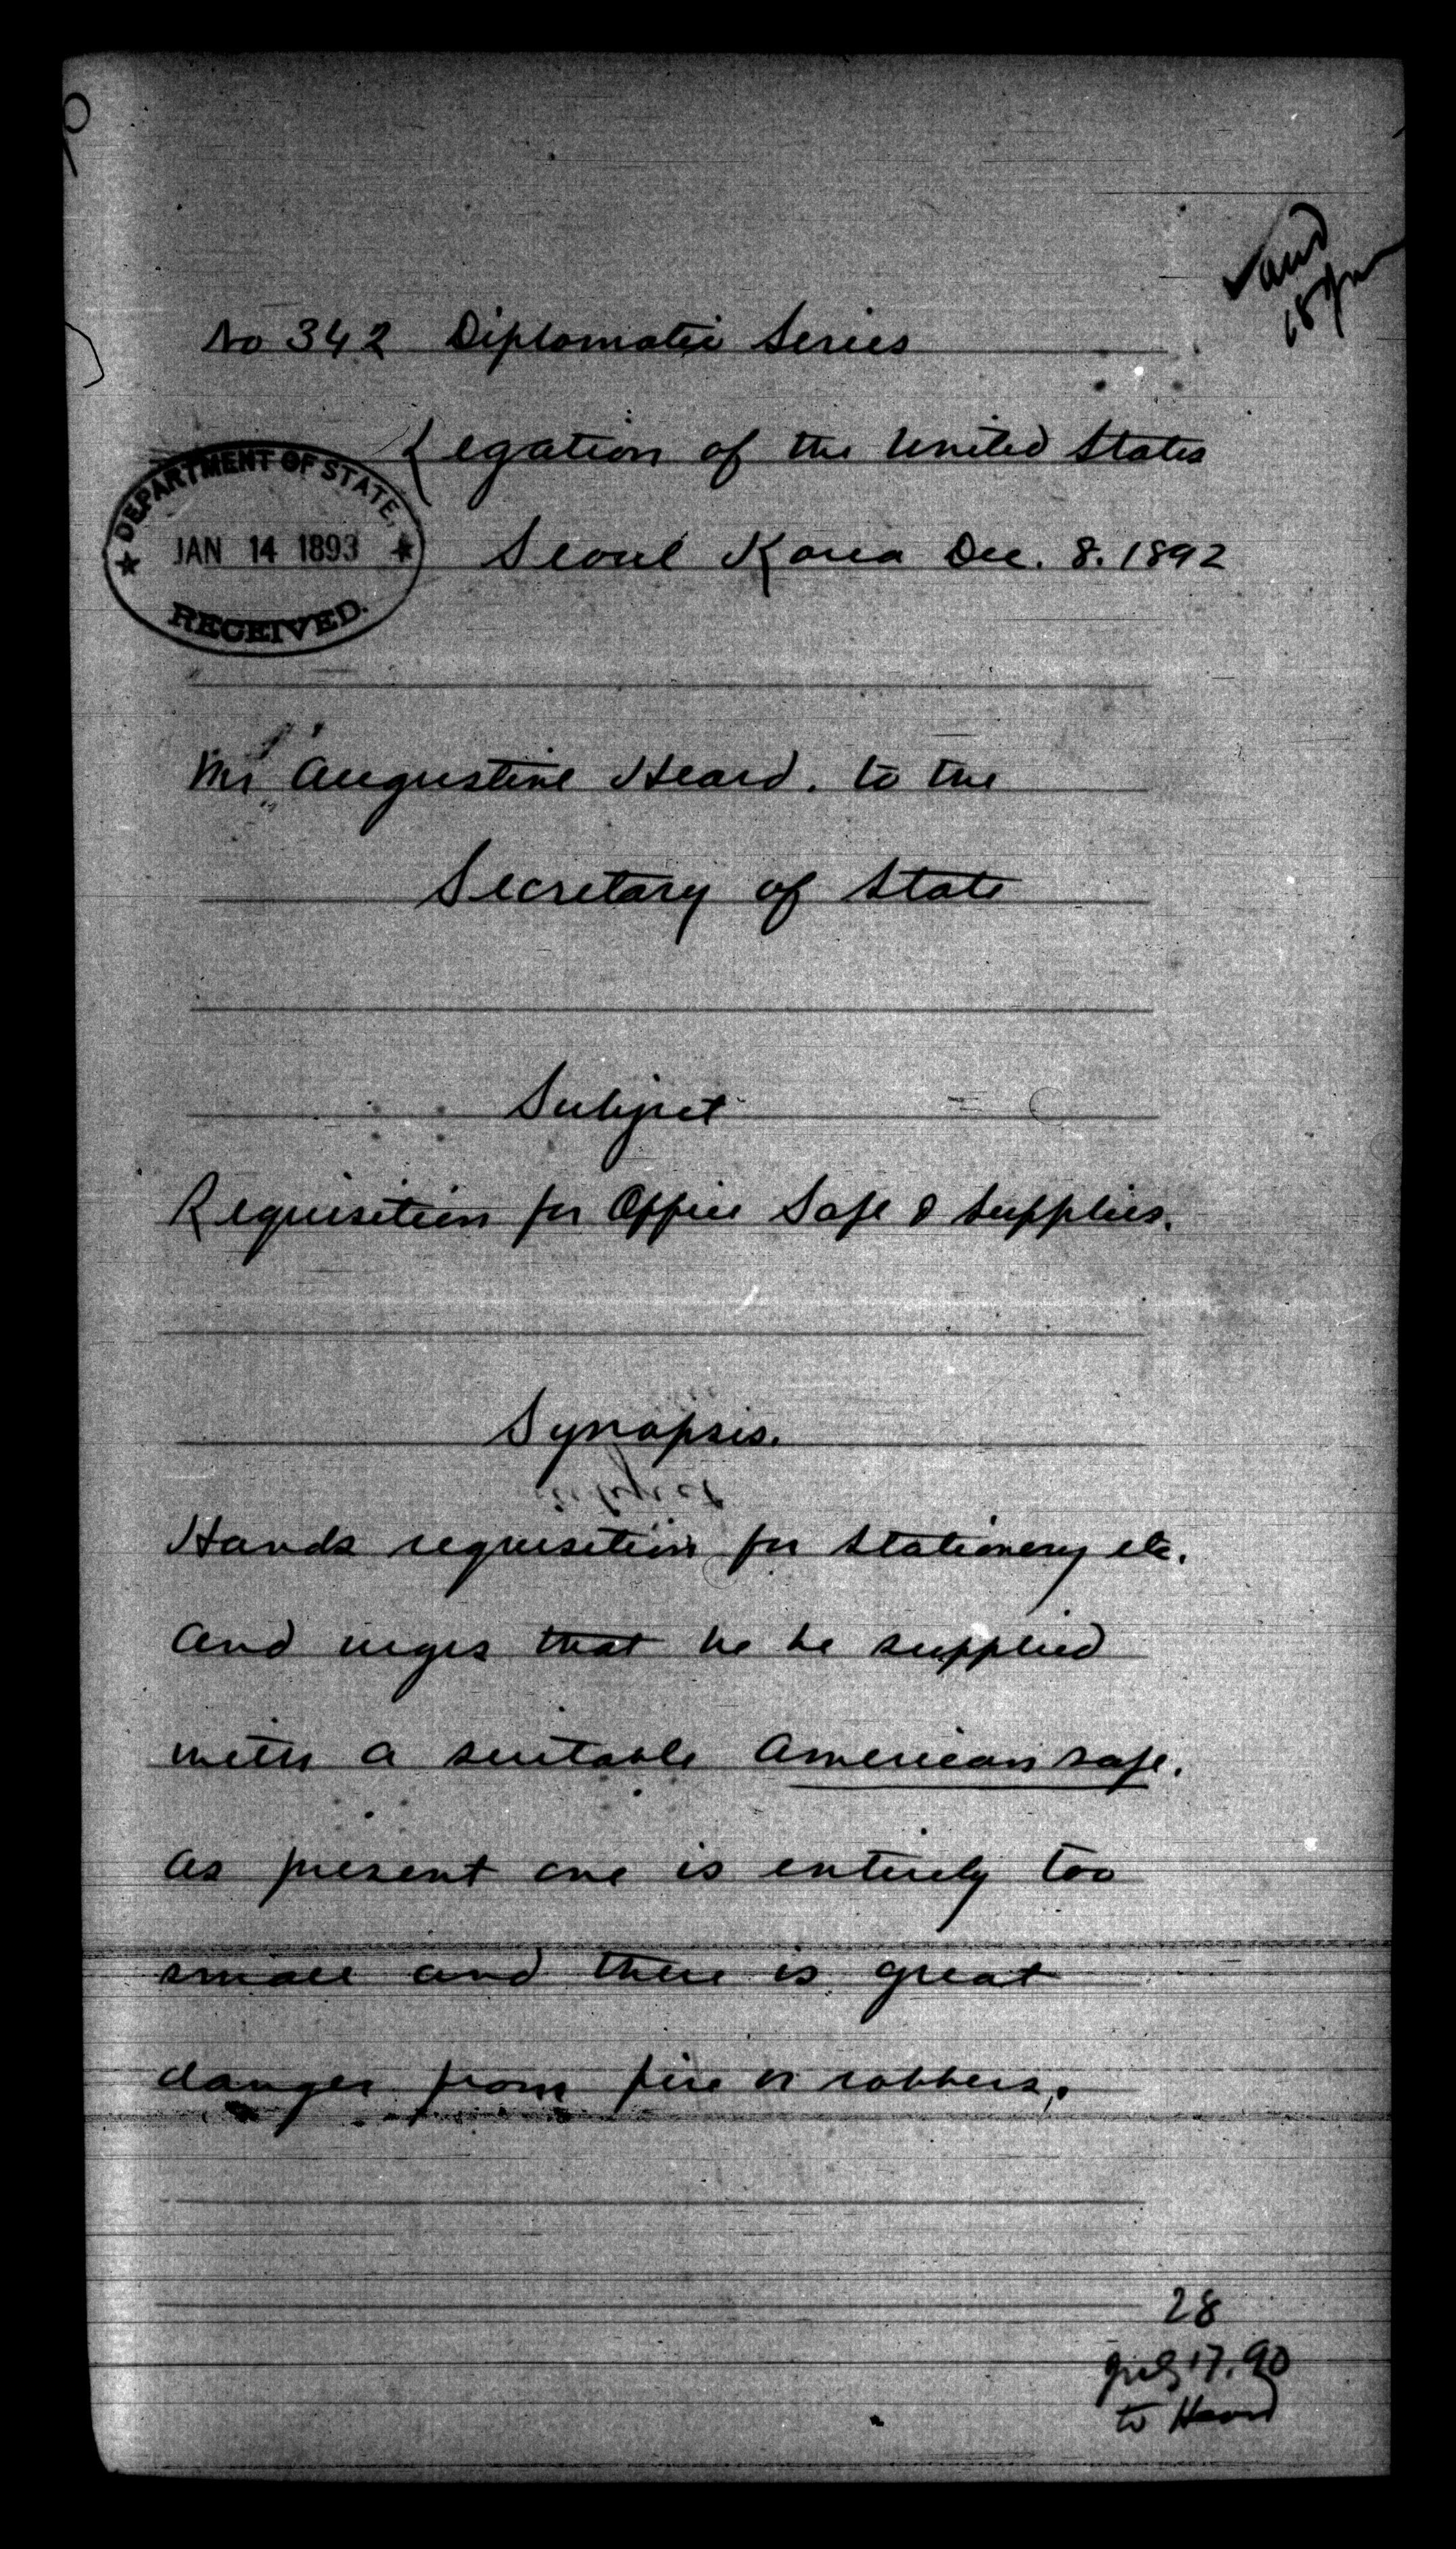 No 342 Diplomatic Series
Legation of the United States
DEPARTMENT OF STATE,
JAN 14 1893
RECEIVED.
Seoul Korea Dec. 8. 1892
Mr Augustine Heard. to the
Secretary of State
Subject
Requisition for Office Safe & Supplies.
Synopsis.
Hands requisition for Stationery etc.
and urges that he be supplied
with a suitable American safe.
as present one is entirely too
small and there is great
danger from fire or robbers.
28
July 17. 90
to Heard